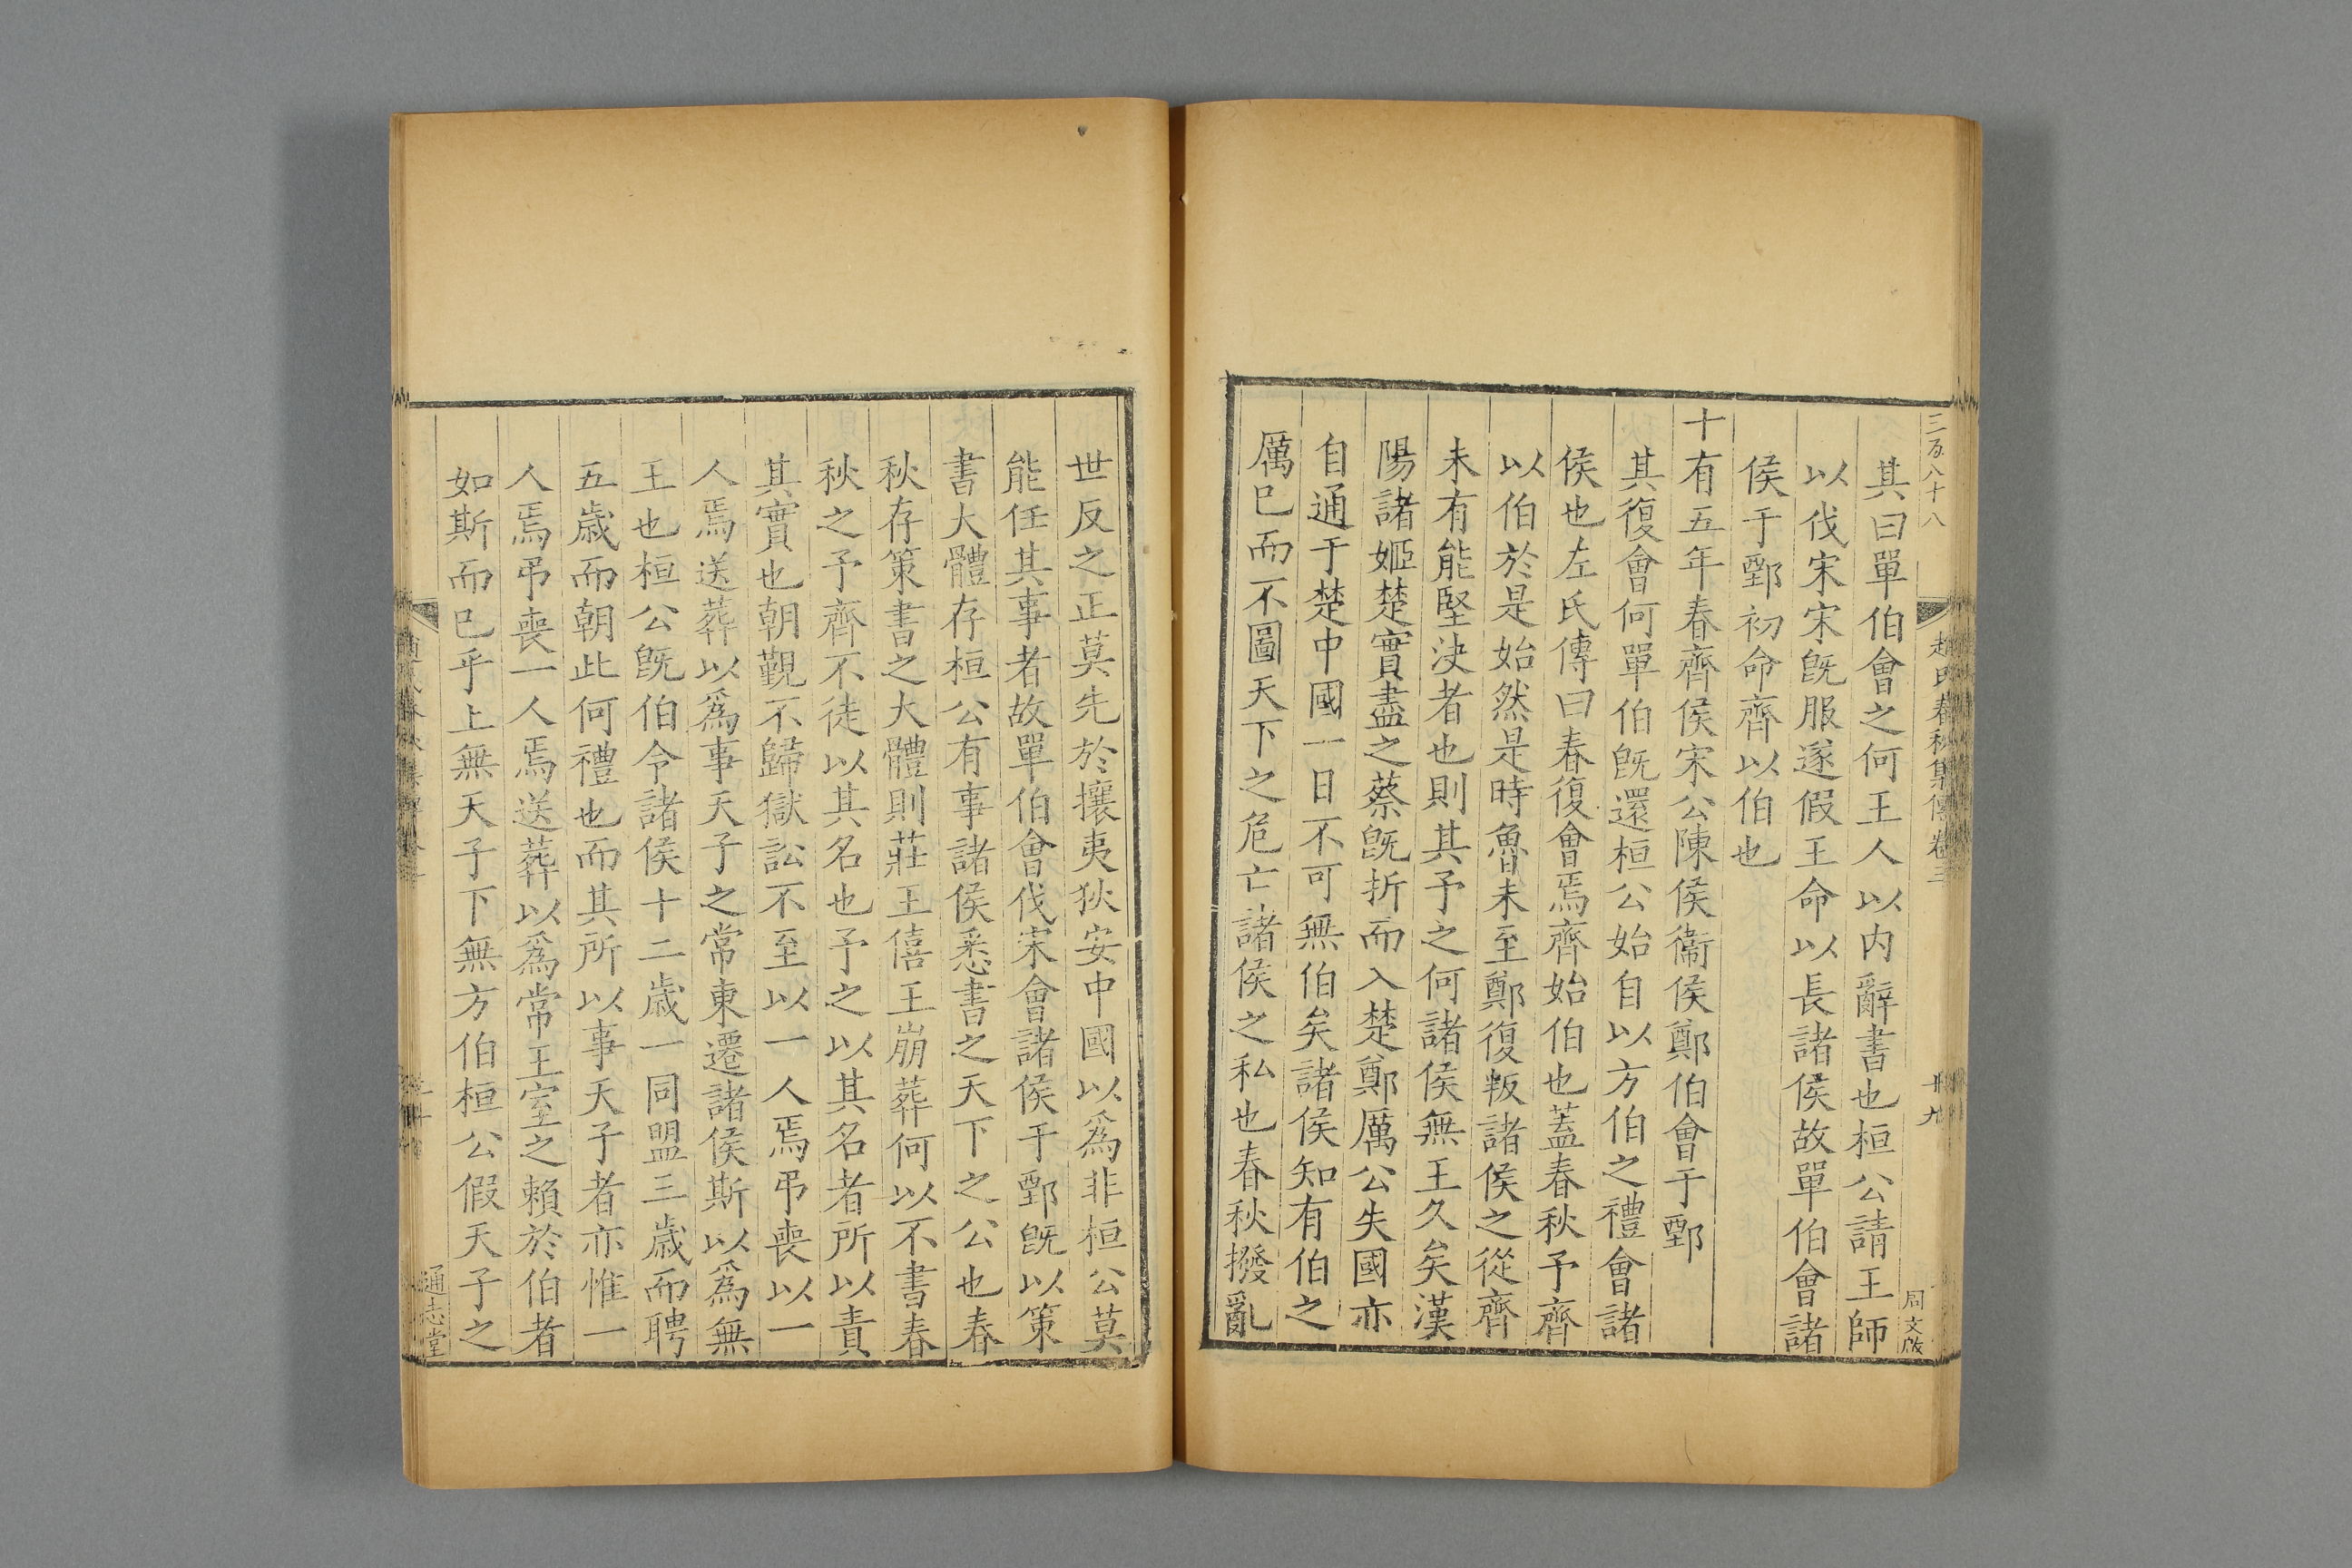 三百八十八
趙氏春秋集傳卷三
卅九
同文啟
其曰單伯會之何王人以内辭書也桓公請王師
以伐宋宋旣服遂假王命以長諸侯故單伯會諸
侯于鄄初命齊以伯也
十有五年春齊侯宋公陳侯衞侯鄭伯會于鄄
其復會何單伯旣還桓公始自以方伯之禮會諸
侯也左氏傳曰春復會焉齊始伯也蓋春秋予齊
以伯於是始然是時魯未至鄭復叛諸侯之從齊
未有能堅決者也則其予之何諸侯無王久矣漢
陽諸姬楚實盡之蔡旣折而入楚鄭厲公失國亦
自通于楚中國一日不可無伯矣諸侯知有伯之
厲已而不圖天下之危亡諸侯之私也春秋撥亂
世反之正莫先於攘夷狄安中國以爲非桓公莫
能任其事者故單伯會伐宋會諸侯于鄄旣以策
書大體存桓公有事諸侯悉書之天下之公也春
秋存策書之大體則莊王僖王崩葬何以不書春
秋之予齊不徒以其名也予之以其名者所以責
其實也朝覲不歸獄訟不至以一人焉弔喪以一
人焉送葬以爲事天子之常東遷諸侯斯以爲無
王也桓公旣伯令諸侯十二歲一同盟三歲而聘
五歲而朝此何禮也而其所以事天子者亦惟一
人焉弔喪一人焉送葬以爲常王室之賴於伯者
如斯而已乎上無天子下無方伯桓公假天子之
通志堂